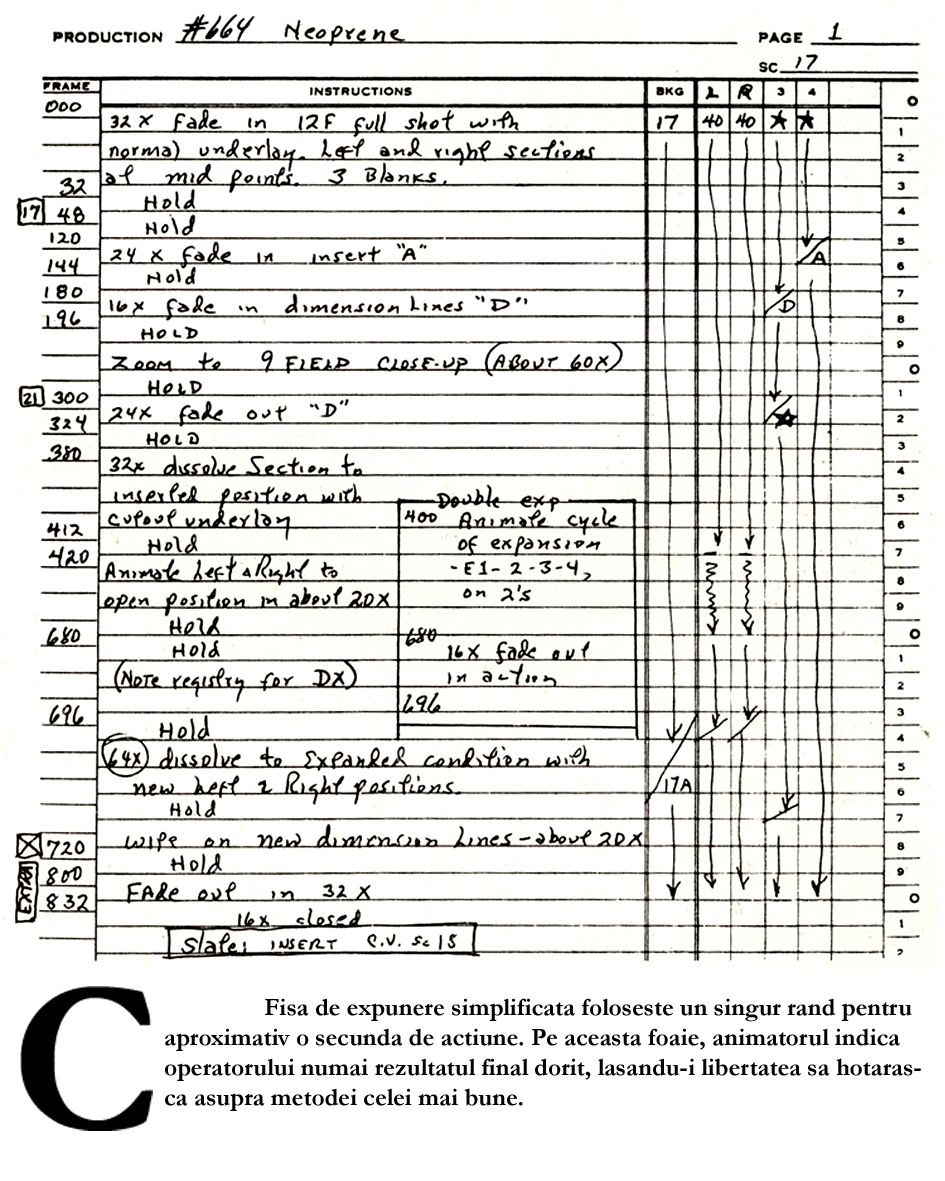 PRODUCTION #664 Neoprene PAGE 1
SC 17
FRAME INSTRUCTIONS BKG L R 3 4
000
32 X Fade in 12F full shot with 17 40 40 ★ ★ 1
normal underlay. Left and right sections 2
32 at mid points. 3 Blanks. 3
17 48 Hold 4
120 Hold 5
144 24 X fade in insert "A" A 6
Hold
180 7
196 16x fade in dimension Lines "D" D 8
HOLD 9
ZOOM to 9 FIELD CLOSE-UP (ABOUT 60X) 0
21 300 HOLD 1
324 24X fade out "D" ★ 2
380 HOLD 3
32x dissolve Section to 4
inserted position with 5
Double exp
412 cutout underlay 6
400 Animate cycle
420 Hold 7
of expansion
Animate Left & Right to 8
-E1-2-3-4,
open position in about 20X 9
on 2's
680 Hold 0
680
Hold 1
16X fade out
(Note registry for DX) 2
in action
696 3
696
Hold 4
64X dissolve to Expanded condition with 5
new Left & Right positions. 17A 6
Hold 7
720 Wipe on new dimension Lines - about 20X 8
800 Hold 9
EXTRA 832 FAde out in 32 X 0
16x closed 1
Slate: INSERT C.V. Sc 15 2
C
Fisa de expunere simplificata foloseste un singur rand pentru
aproximativ o secunda de actiune. Pe aceasta foaie, animatorul indica
operatorului numai rezultatul final dorit, lasandu-i libertatea sa hotaras-
ca asupra metodei celei mai bune.